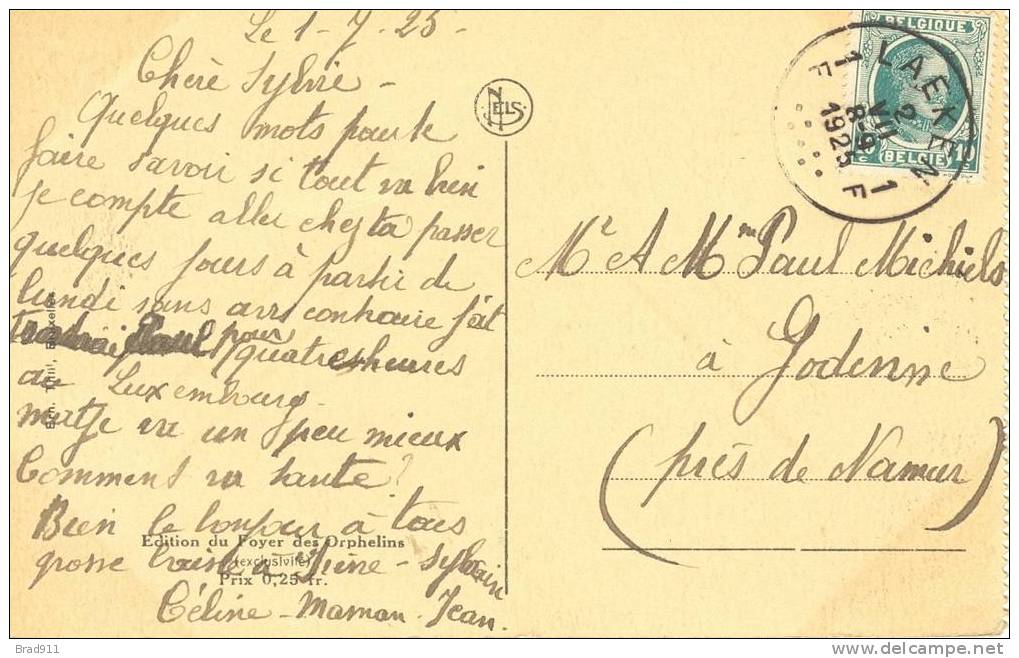 Le 1-7-25-
Chère Sylvie -
Quelques mots pour te
faire savoir si tout va bien
je compte aller chez ta passer
quelques jours à partir de
lundi sans avis contraire
Paul pour quatres heures
au Luxembourg-
va un peu mieux
Comment va santé?
Bien le bonjour à tous
grosse à - Sylvain
Céline - Maman - Jean.
Edition du Foyer des Orphelins
(exclusivité)
Prix 0,25 fr.
Ern. Thill, Bruxelles
NELS
BELGIQUE
10 c BELGIË 10 c
LAEKEN
1 F 1 F
2
VII
8-9
1925
Mr A Mme Paul Michiels
à Godinne
(près de Namur)
© Brad911
delcampe.net